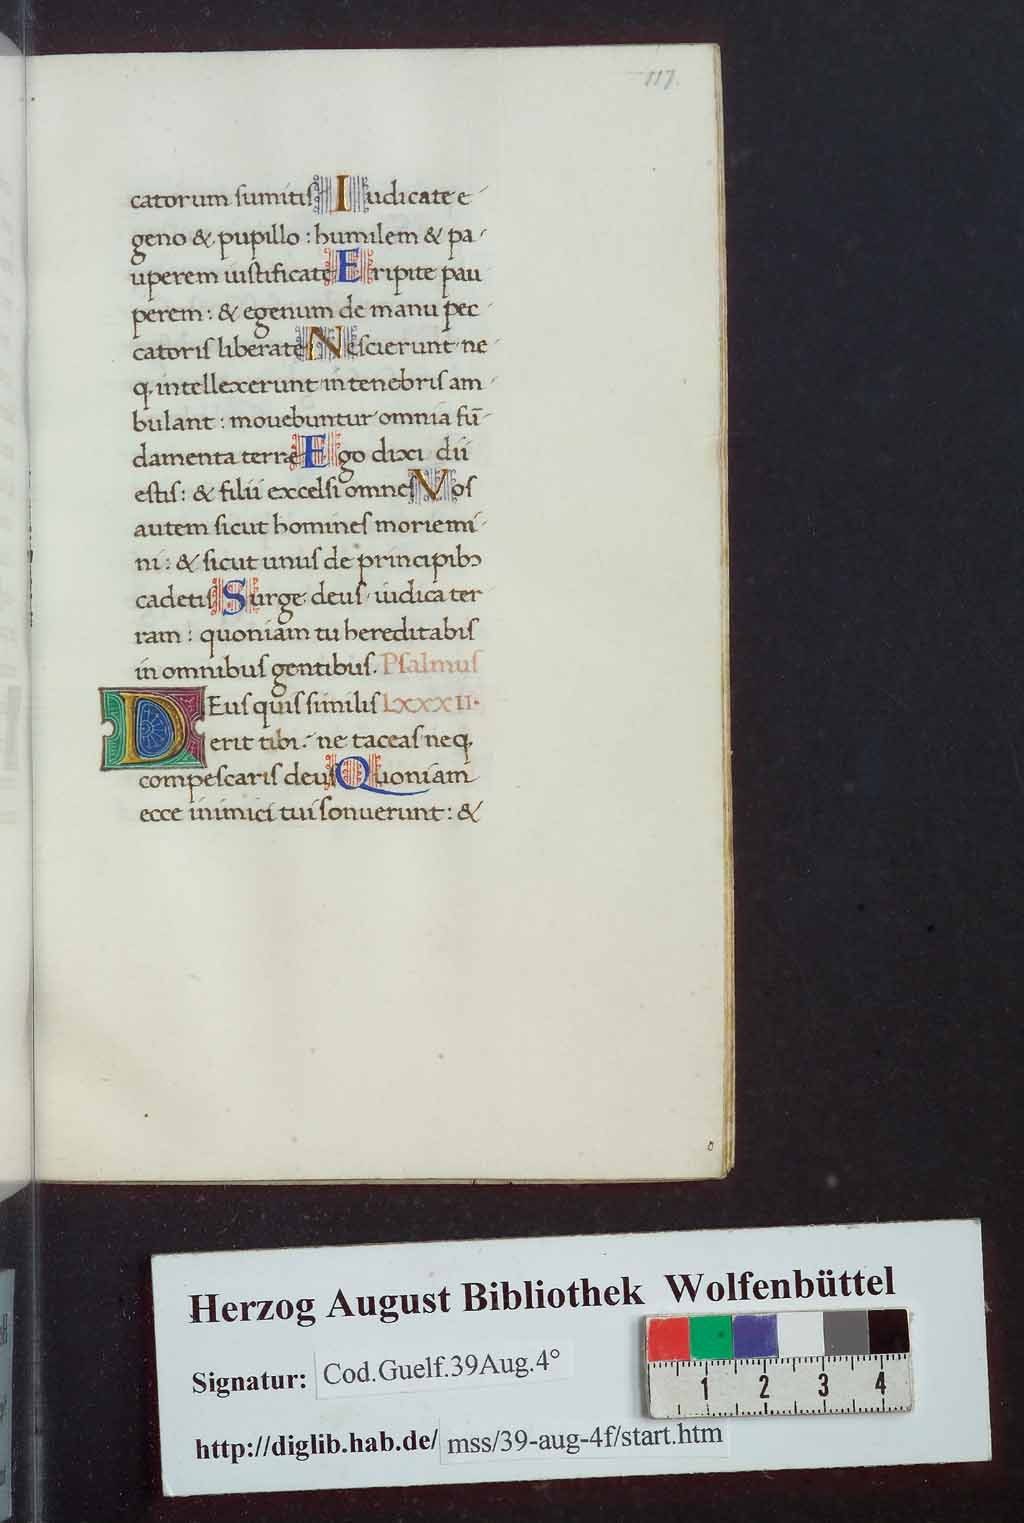 117.
catorum sumitis Iudicate e-
geno & pupillo : humilem & pa-
uperem iustificate Eripite pau
perem : & egenum de manu pec-
catoris liberate Nescierunt ne-
q, intellexerunt in tenebris am-
bulant : mouebuntur omnia fū-
damenta terræ Ego dixi dii
estis : & filii excelsi omnes Vos
autem sicut homines moriemi-
ni : & sicut unus de principibꝫ
cadetis Surge deus iudica ter
ram : quoniam tu hereditabis
in omnibus gentibus. Psalmus
DEus quis similis LXXXII.
erit tibi : ne taceas neq,
compescaris deus Quoniam
ecce inimici tui sonuerunt : &
Herzog August Bibliothek Wolfenbüttel
Signatur: Cod.Guelf.39Aug.4°
http://diglib.hab.de/ mss/39-aug-4f/start.htm
1 2 3 4